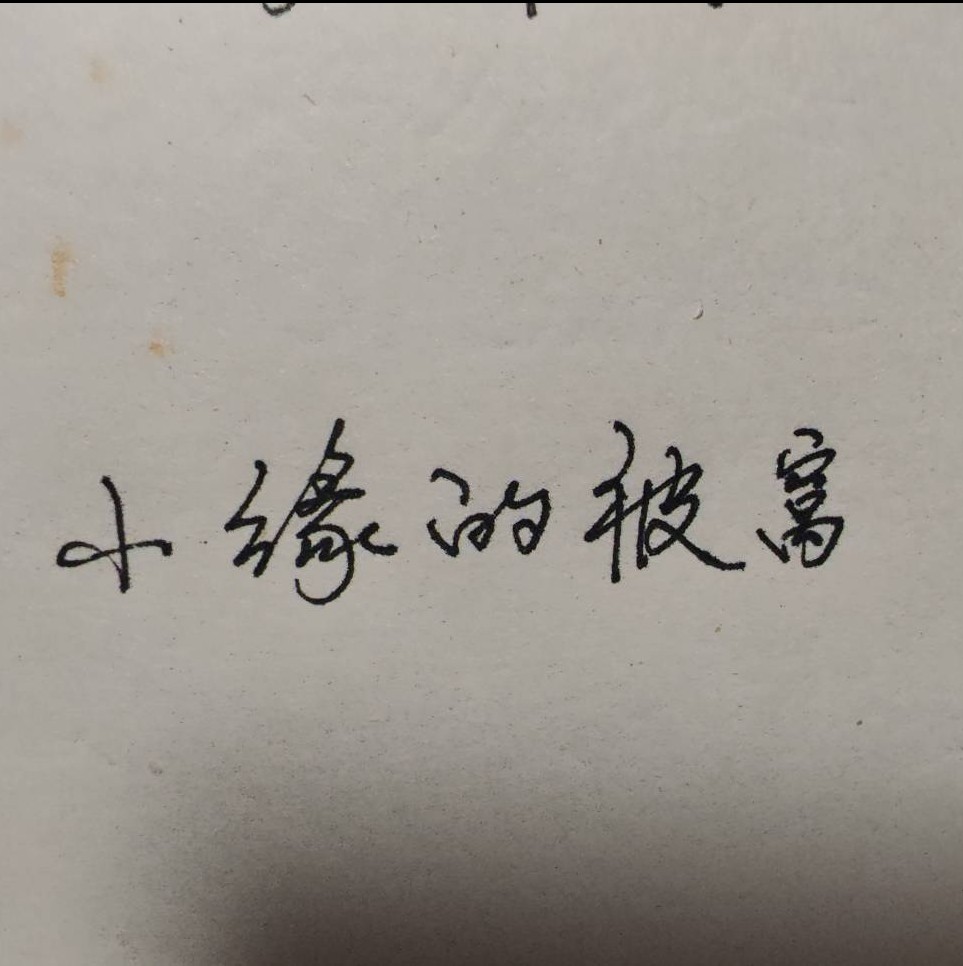 小缘的被窝